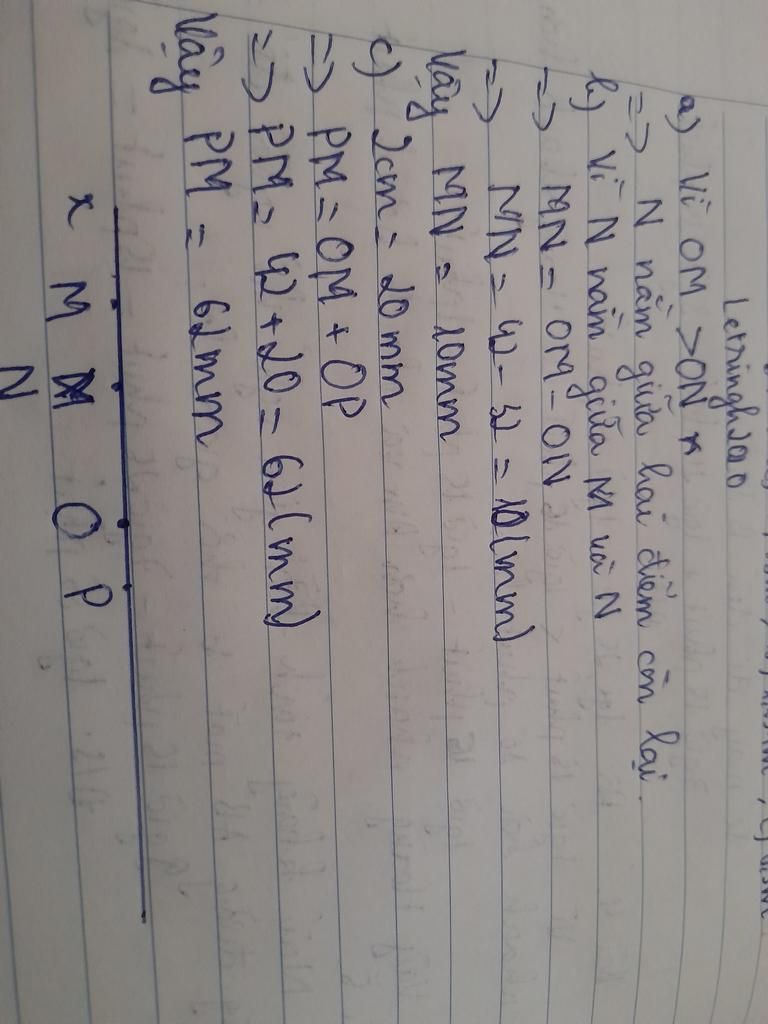 Letringh2010
a) Vì OM > ON
=> N nằm giữa hai điểm còn lại.
b) Vì N nằm giữa M và N
=> MN = OM - ON
=> MN = 42 - 32 = 10 (mm)
Vậy MN = 10mm
c) 2cm = 20mm
=> PM = OM + OP
=> PM = 42 + 20 = 62 (mm)
Vậy PM = 62mm
x M O P
N